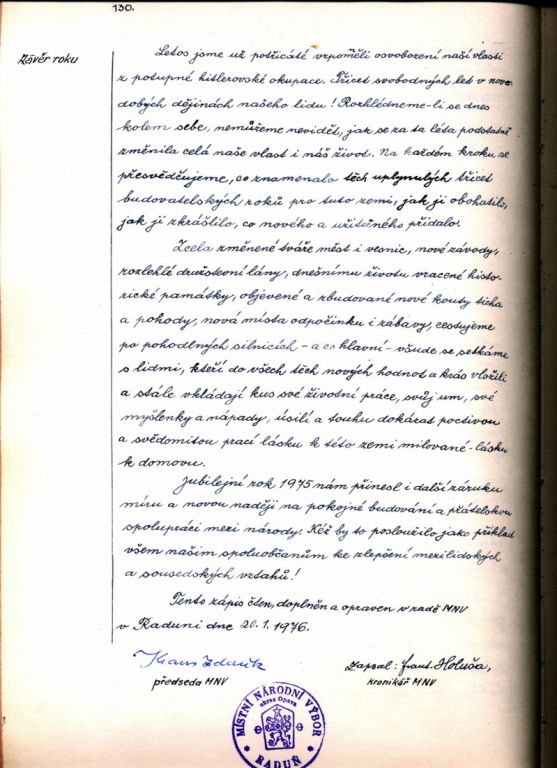 130.
Závěr roku
Letos jsme už potřicáté vzpoměli osvobození naší vlasti
z potupné hitlerovské okupace. Třicet svobodných let v novo-
dobých dějinách našeho lidu! Rozhlédneme-li se dnes
kolem sebe, nemůžeme nevidět, jak se za ta léta podstatně
změnila celá naše vlast i náš život. Na každém kroku se
přesvědčujeme, co znamenalo těch uplynulých třicet
budovatelských roků pro tuto zemi, jak ji obohatilo,
jak ji zkrášlilo, co nového a užitečného přidalo.
Zcela změněné tváře měst i vesnic, nové závody,
rozlehlé družstevní lány, dnešnímu životu vracené histo-
rické památky, objevené a zbudované nové kouty ticha
a pohody, nová místa odpočinku i zábavy, cestujeme
po pohodlných silnicích - a co hlavní - všude se setkáme
s lidmi, kteří do všech těch nových hodnot a krás vložili
a stále vkládají kus své životní práce, svůj um, své
myšlenky a nápady, úsilí a touhu dokázat poctivou
a svědomitou prací lásku k této zemi milované - lásku
k domovu.
Jubilejní rok 1975 nám přinesl i další záruku
míru a novou naději na pokojné budování a přátelskou
spolupráci mezi národy. Kéž by to posloužilo jako příklad
všem našim spoluobčanům ke zlepšení mezilidských
a sousedských vztahů!
Tento zápis čten, doplněn a opraven v radě MNV
v Raduni dne 20.1.1976.
Kraus Zdeněk
předseda MNV
Zapsal: Frant. Holuša,
kronikář MNV
MÍSTNÍ NÁRODNÍ VÝBOR
okres Opava
RADUŇ